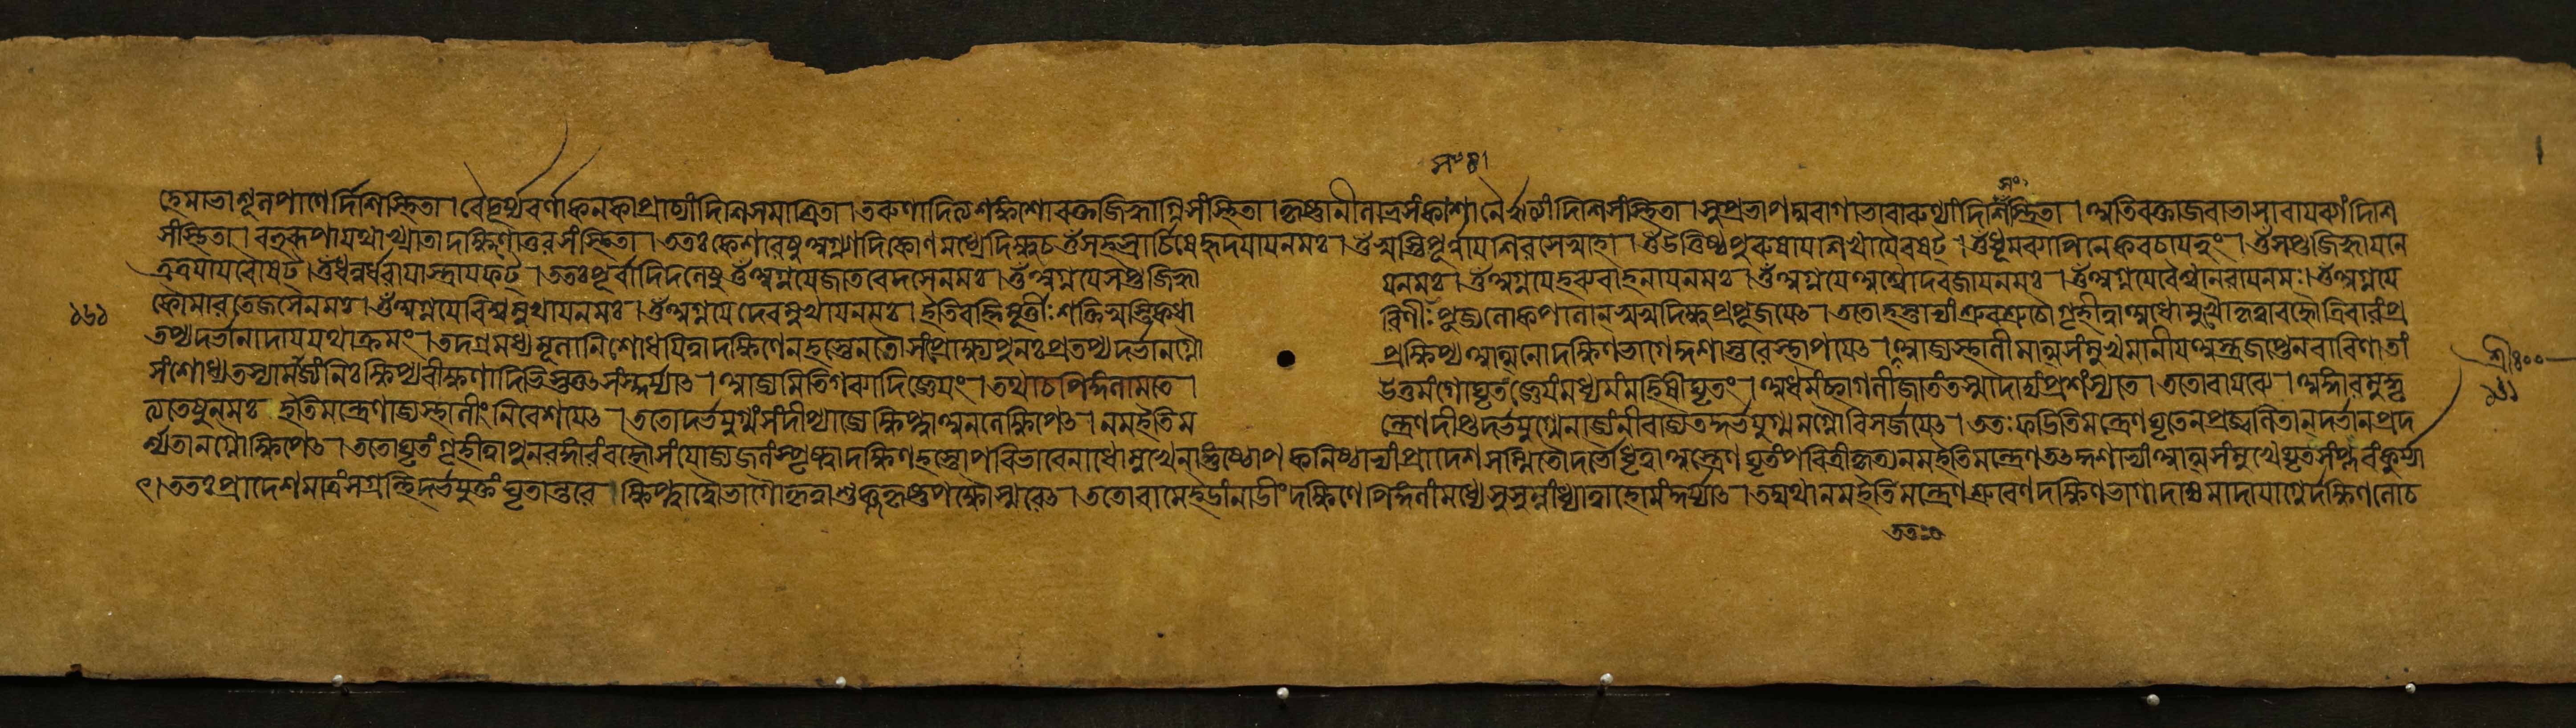 স° ৪।
হেমাভা শূলপাণের্দিশি স্থিতা । বৈদূর্য্যবর্ণা কনকা প্রাচ্যাং দিশি সমাশ্রিতা । তরুণাদিত্যশঙ্কাশা রক্তজিহ্বাগ্নিসংস্থিতা । কৃষ্ণা নীলাভ্রসংকাশা নৈরৃত্যাং দিশি সংস্থিতা । সুপ্রভা পদ্মরাগাভা বারুণ্যাং দিশি সংস্থিতা । অতিরক্তা জবাভাসা বায়ব্যাং দিশি
সংস্থিতা । বহুরূপা যথাখ্যাতা দক্ষিণোত্তরসংস্থিতা । ততঃ কেশরেষু অগ্ন্যাদিকোণমধ্যে দিক্ষু চ ওঁ সহস্রার্চ্চিষে হৃদয়ায় নমঃ । ওঁ স্বস্তিপূর্ণায় শিরসে স্বাহা । ওঁ উত্তিষ্ঠপুরুষায় শিখায়ৈ বষট্ । ওঁ ধূমব্যাপিনে কবচায় হুং । ওঁ সপ্তজিহ্বায় নে
ত্রত্রয়ায় বৌষট্ । ওঁ ধনুর্ধরায়াস্ত্রায় ফট্ । ততঃ পূর্বাদিদলেষু ওঁ অগ্নয়ে জাতবেদসে নমঃ । ওঁ অগ্নয়ে সপ্তজিহ্বা য় নমঃ । ওঁ অগ্নয়ে হব্যবাহনায় নমঃ । ওঁ অগ্নয়ে অশ্বোদরজায় নমঃ । ওঁ অগ্নয়ে বৈশ্বানরায় নমঃ । ওঁ অগ্নয়ে
১৬১ কৌমারতেজসে নমঃ । ওঁ অগ্নয়ে বিশ্বমুখায় নমঃ । ওঁ অগ্নয়ে দেবমুখায় নমঃ । ইতি বহ্নিমূর্ত্তীঃ শক্তিস্বস্তিকধা রিণীঃ পূজ্য লোকপালান্ স্বস্বদিক্ষু প্রপূজয়েৎ । ততো হস্তাভ্যাং শ্রুবশ্রুচৌ গৃহীত্বা অধোমুখৌ কৃত্বা বহ্নৌ ত্রিবারং প্র
তপ্য দর্ভানাদায় যথাক্রমং । তদগ্রমধ্যমূলানি শোধয়িত্বা দক্ষিণেন হস্তেন তৌ সংপ্রোক্ষ্য পুনঃ প্রতপ্য দর্ভানগ্নৌ প্রক্ষিপ্য আত্মনো দক্ষিণভাগে দর্ভাস্তরে স্থাপয়েৎ । আজ্যস্থালীমাত্মসংমুখমানীয় অস্ত্রজপ্তেন বারিণা তাং
সংশোধ্য তস্যামাজ্যং নিঃক্ষিপ্য বীক্ষণাদিভিস্তৎ সংস্কুর্য্যাৎ । আজ্যমিতি গব্যাদি জ্ঞেয়ং । তথা চ পিঙ্গলামতে । উত্তমং গোঘৃতং জ্ঞেয়ং মধ্যমং মহিষীঘৃতং । অধমং ছাগলীজাতং তস্মাদাদ্যং প্রশস্যতে । ততো বায়ব্যে অঙ্গারমুদ্ধৃ
ত্য তেষু নমঃ ইতি মন্ত্রেণাজ্যস্থালীং নিবেশয়েৎ । ততো দর্ভযুগ্মং সংদীপ্যাজ্যে ক্ষিপ্ত্বা অনলে ক্ষিপেৎ । নম ইতি ম ন্ত্রেণ দীপ্তদর্ভযুগ্মেনাজ্যং নীরাজ্য তদ্দর্ভযুগ্মমগ্নৌ বিসর্জয়েৎ । ততঃ ফডিতি মন্ত্রেণ ঘৃতেন প্রজ্বলিতান্ দর্ভান্ প্রদ
র্শ্য তানগ্নৌ ক্ষিপেৎ । ততো ঘৃতং গৃহীত্বা পুনরঙ্গারং বহ্নৌ সংযোজ্য জলং স্পৃষ্ট্বা দক্ষিণহস্তোপরিভাবেনাধোমুখেনাঙ্গুষ্ঠোপকনিষ্ঠাভ্যাং প্রাদেশসম্মিতৌ দর্ভৌ ধৃত্বা অস্ত্রেণ ঘৃতং পবিত্রীকৃত্য নম ইতি মন্ত্রেণ তদ্দর্ভাভ্যাং আত্মসংমুখে ঘৃতসংপ্লবং কুর্য্যা
ৎ । ততঃ প্রাদেশমাত্রং সগ্রন্থি দর্ভযুক্তং ঘৃতান্তরে ক্ষিপ্ত্বা দ্বৌ ভাগৌ কৃত্বা শুক্লকৃষ্ণপক্ষৌ স্মরেৎ । ততো বামে ইডাং নাডীং দক্ষিণে পিঙ্গলাং মধ্যে সুষুম্নাং ধ্যাত্বা হোমং কুর্য্যাৎ । তদ্যথা নম ইতি মন্ত্রেণ শ্রুবেণ দক্ষিণভাগাদাজ্যমাদায়াগ্নের্দক্ষিণলোচ
শ্রীঃ০০
১৬১
ততঃ০